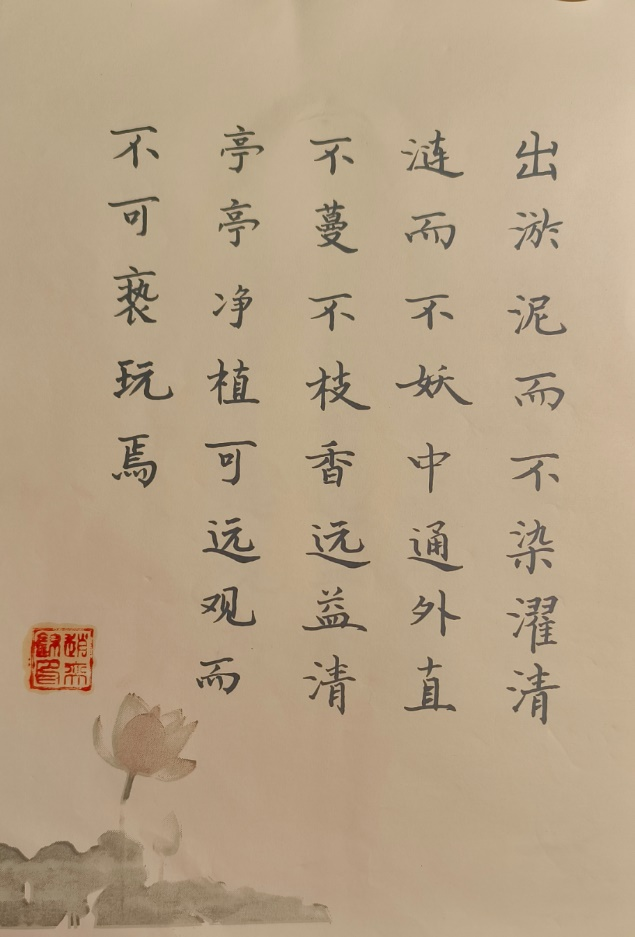 出淤泥而不染濯清
涟而不妖中通外直
不蔓不枝香远益清
亭亭净植可远观而
不可亵玩焉